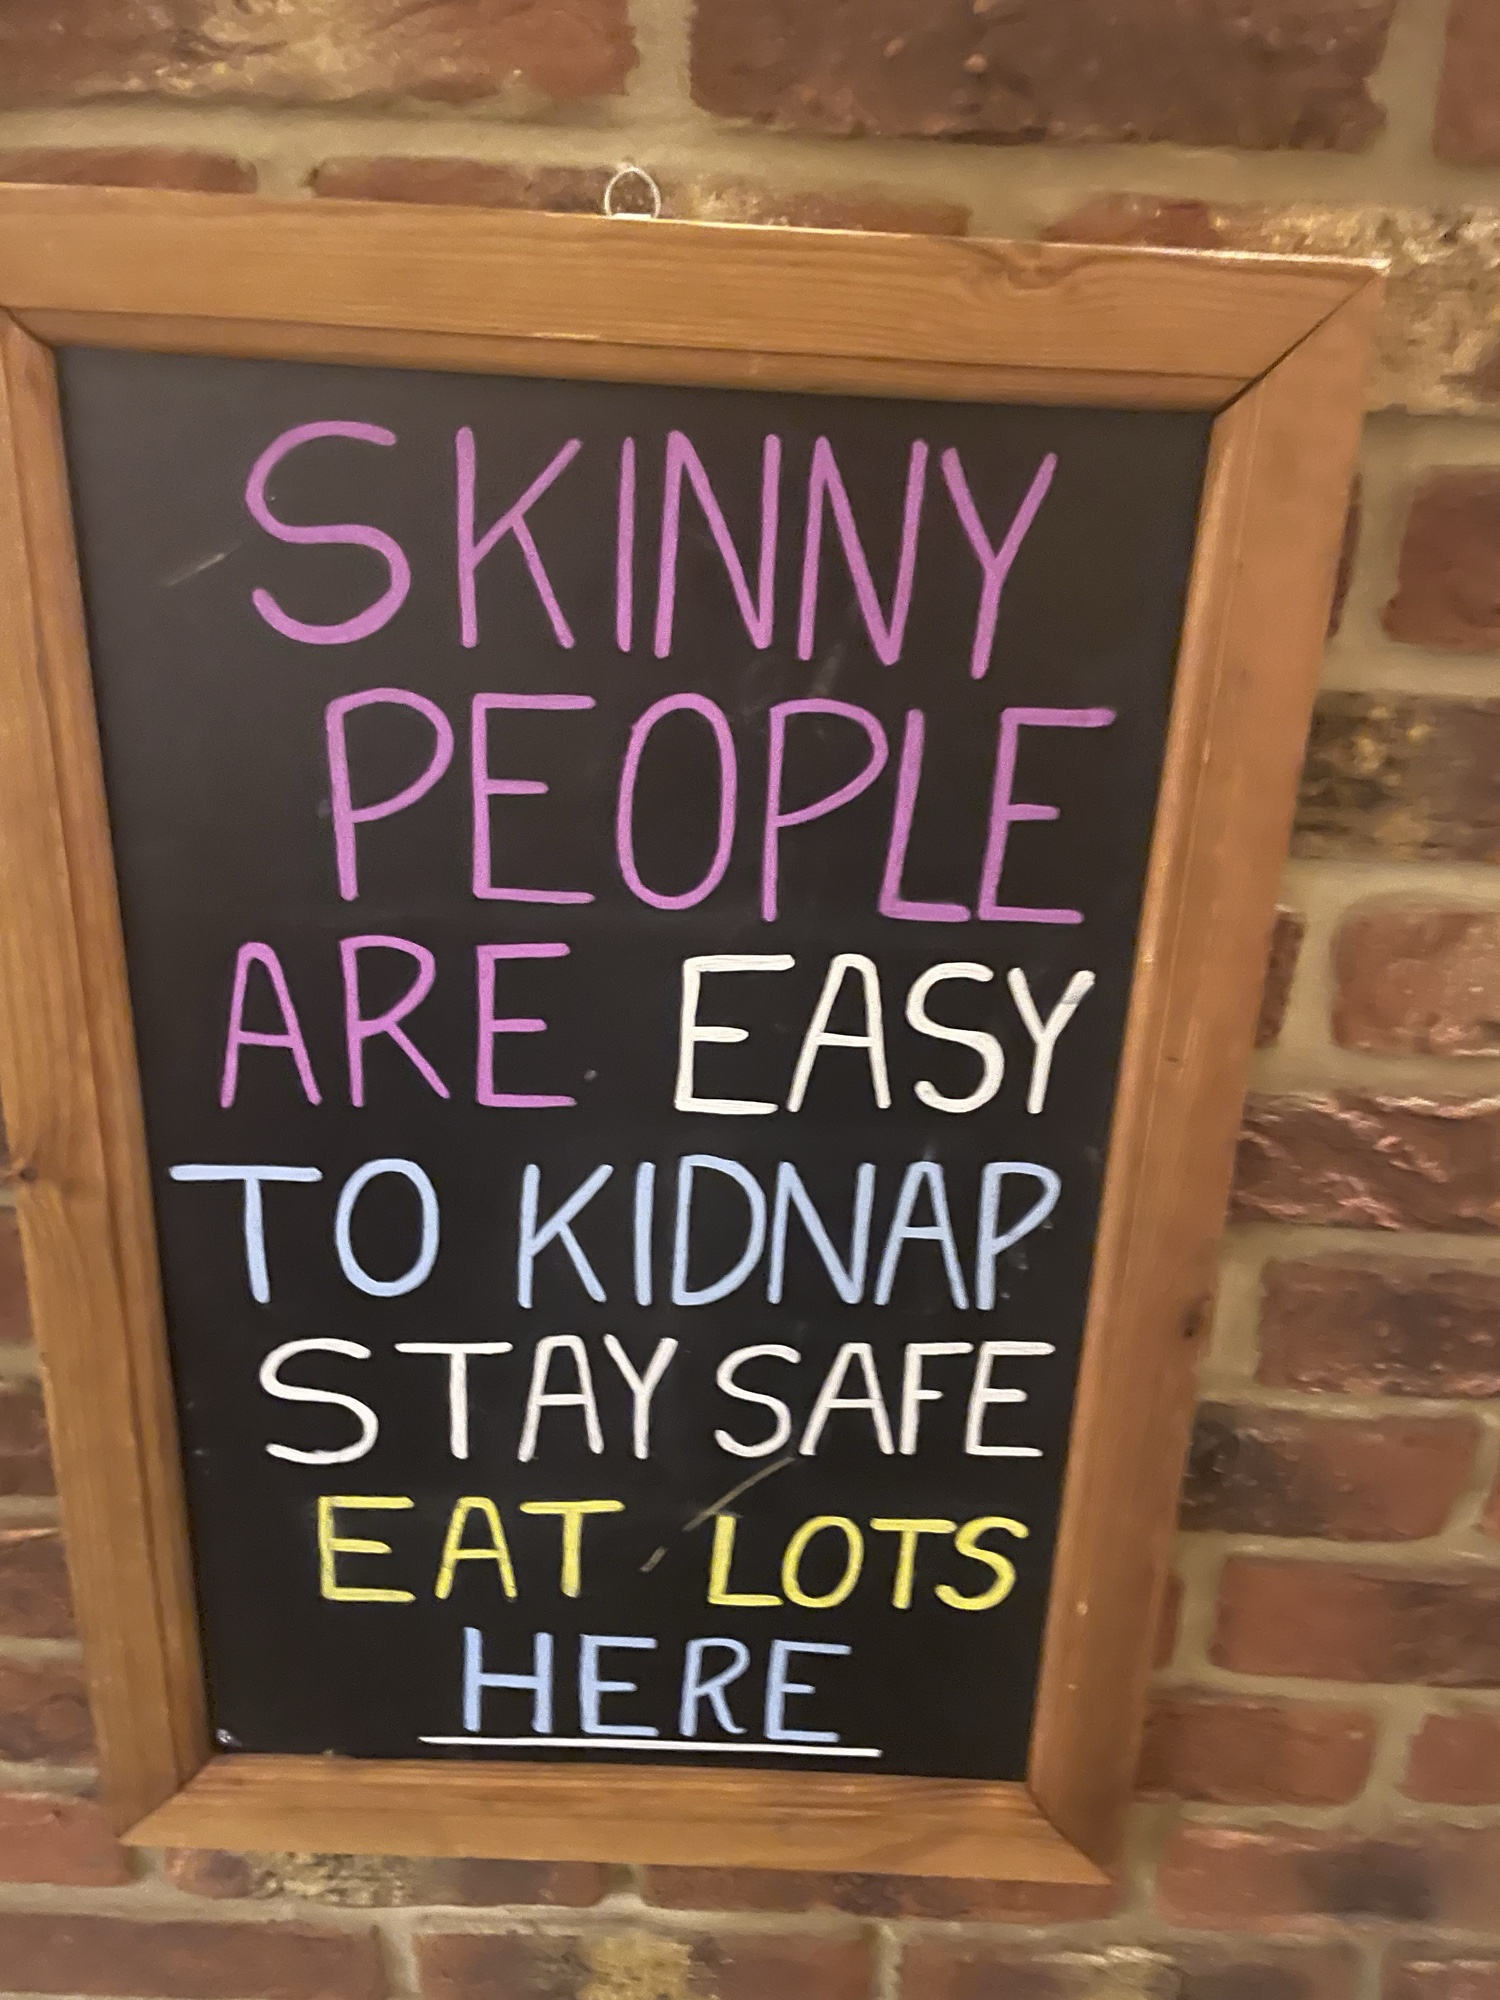 SKINNY
PEOPLE
ARE EASY
TO KIDNAP
STAY SAFE
EAT LOTS
HERE